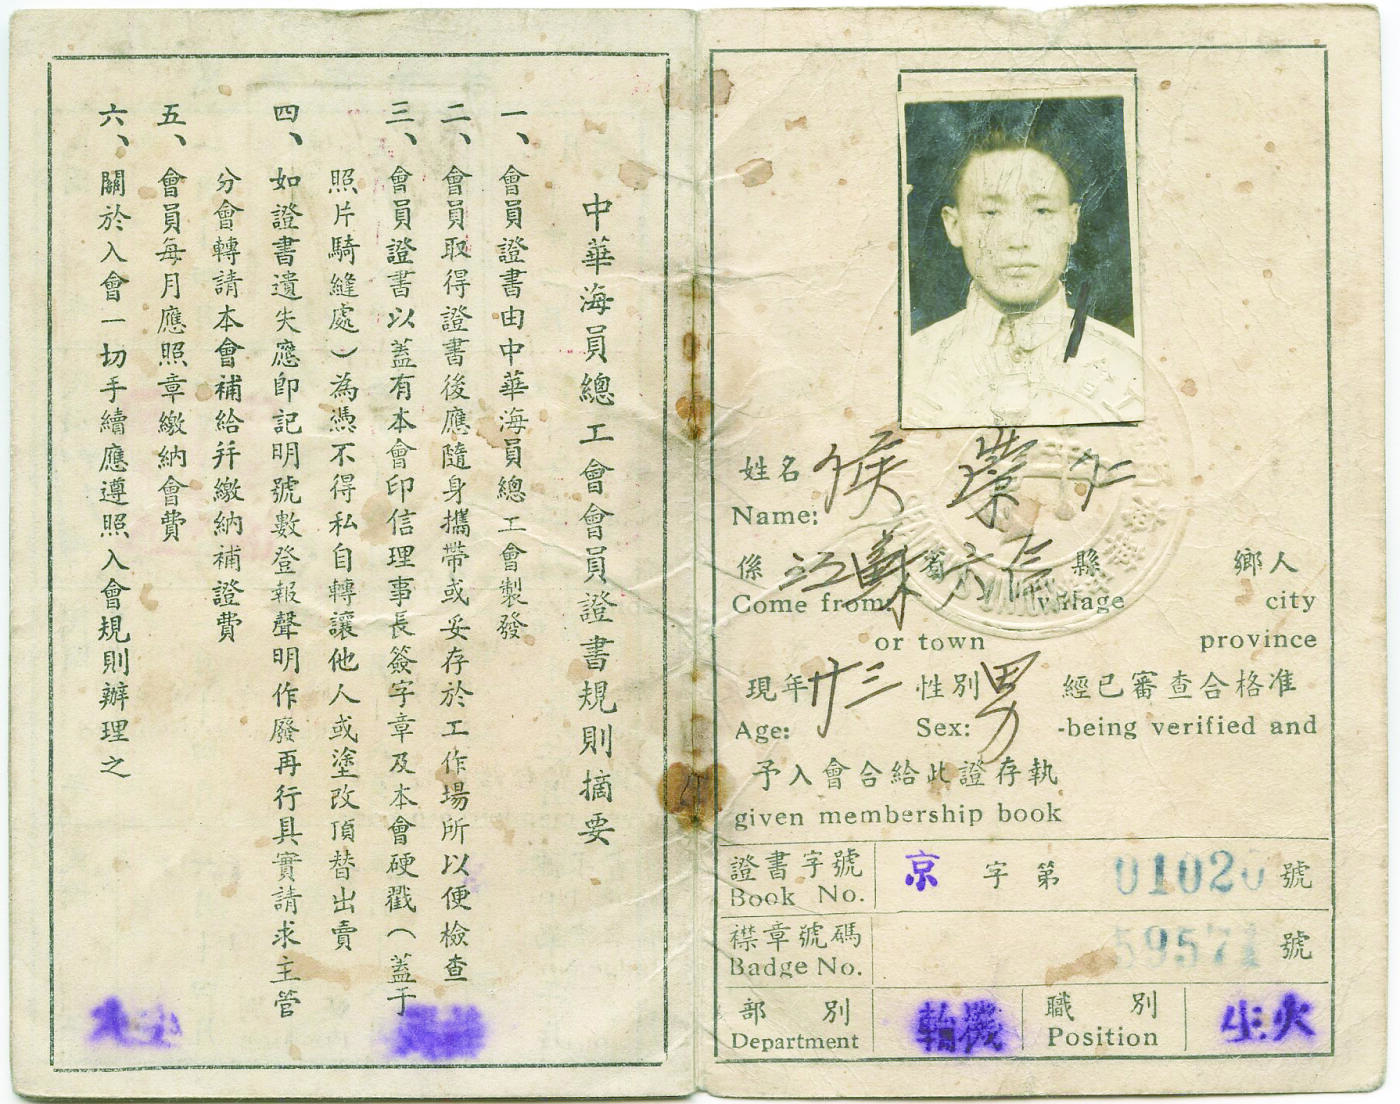 中華海員總工會會員證書規則摘要
一、會員證書由中華海員總工會製發
二、會員取得證書後應隨身攜帶或妥存於工作場所以便檢查
三、會員證書以蓋有本會印信理事長簽字章及本會硬戳（蓋于
照片騎縫處）為憑不得私自轉讓他人或塗改頂替出賣
四、如證書遺失應卽記明號數登報聲明作廢再行具實請求主管
分會轉請本會補給并繳納補證費
五、會員每月應照章繳納會費
六、關於入會一切手續應遵照入會規則辦理之
姓名 侯 榮 仁
Name:
係 江蘇省六合縣 鄉人
Come from: village city
or town province
現年廿三 性別男 經已審查合格准
Age: Sex: -being verified and
予入會合給此證存執
given membership book
證書字號 京 字 第 01020 號
Book No.
襟章號碼 59571 號
Badge No.
部 別 輪機 職 別 生火
Department Position